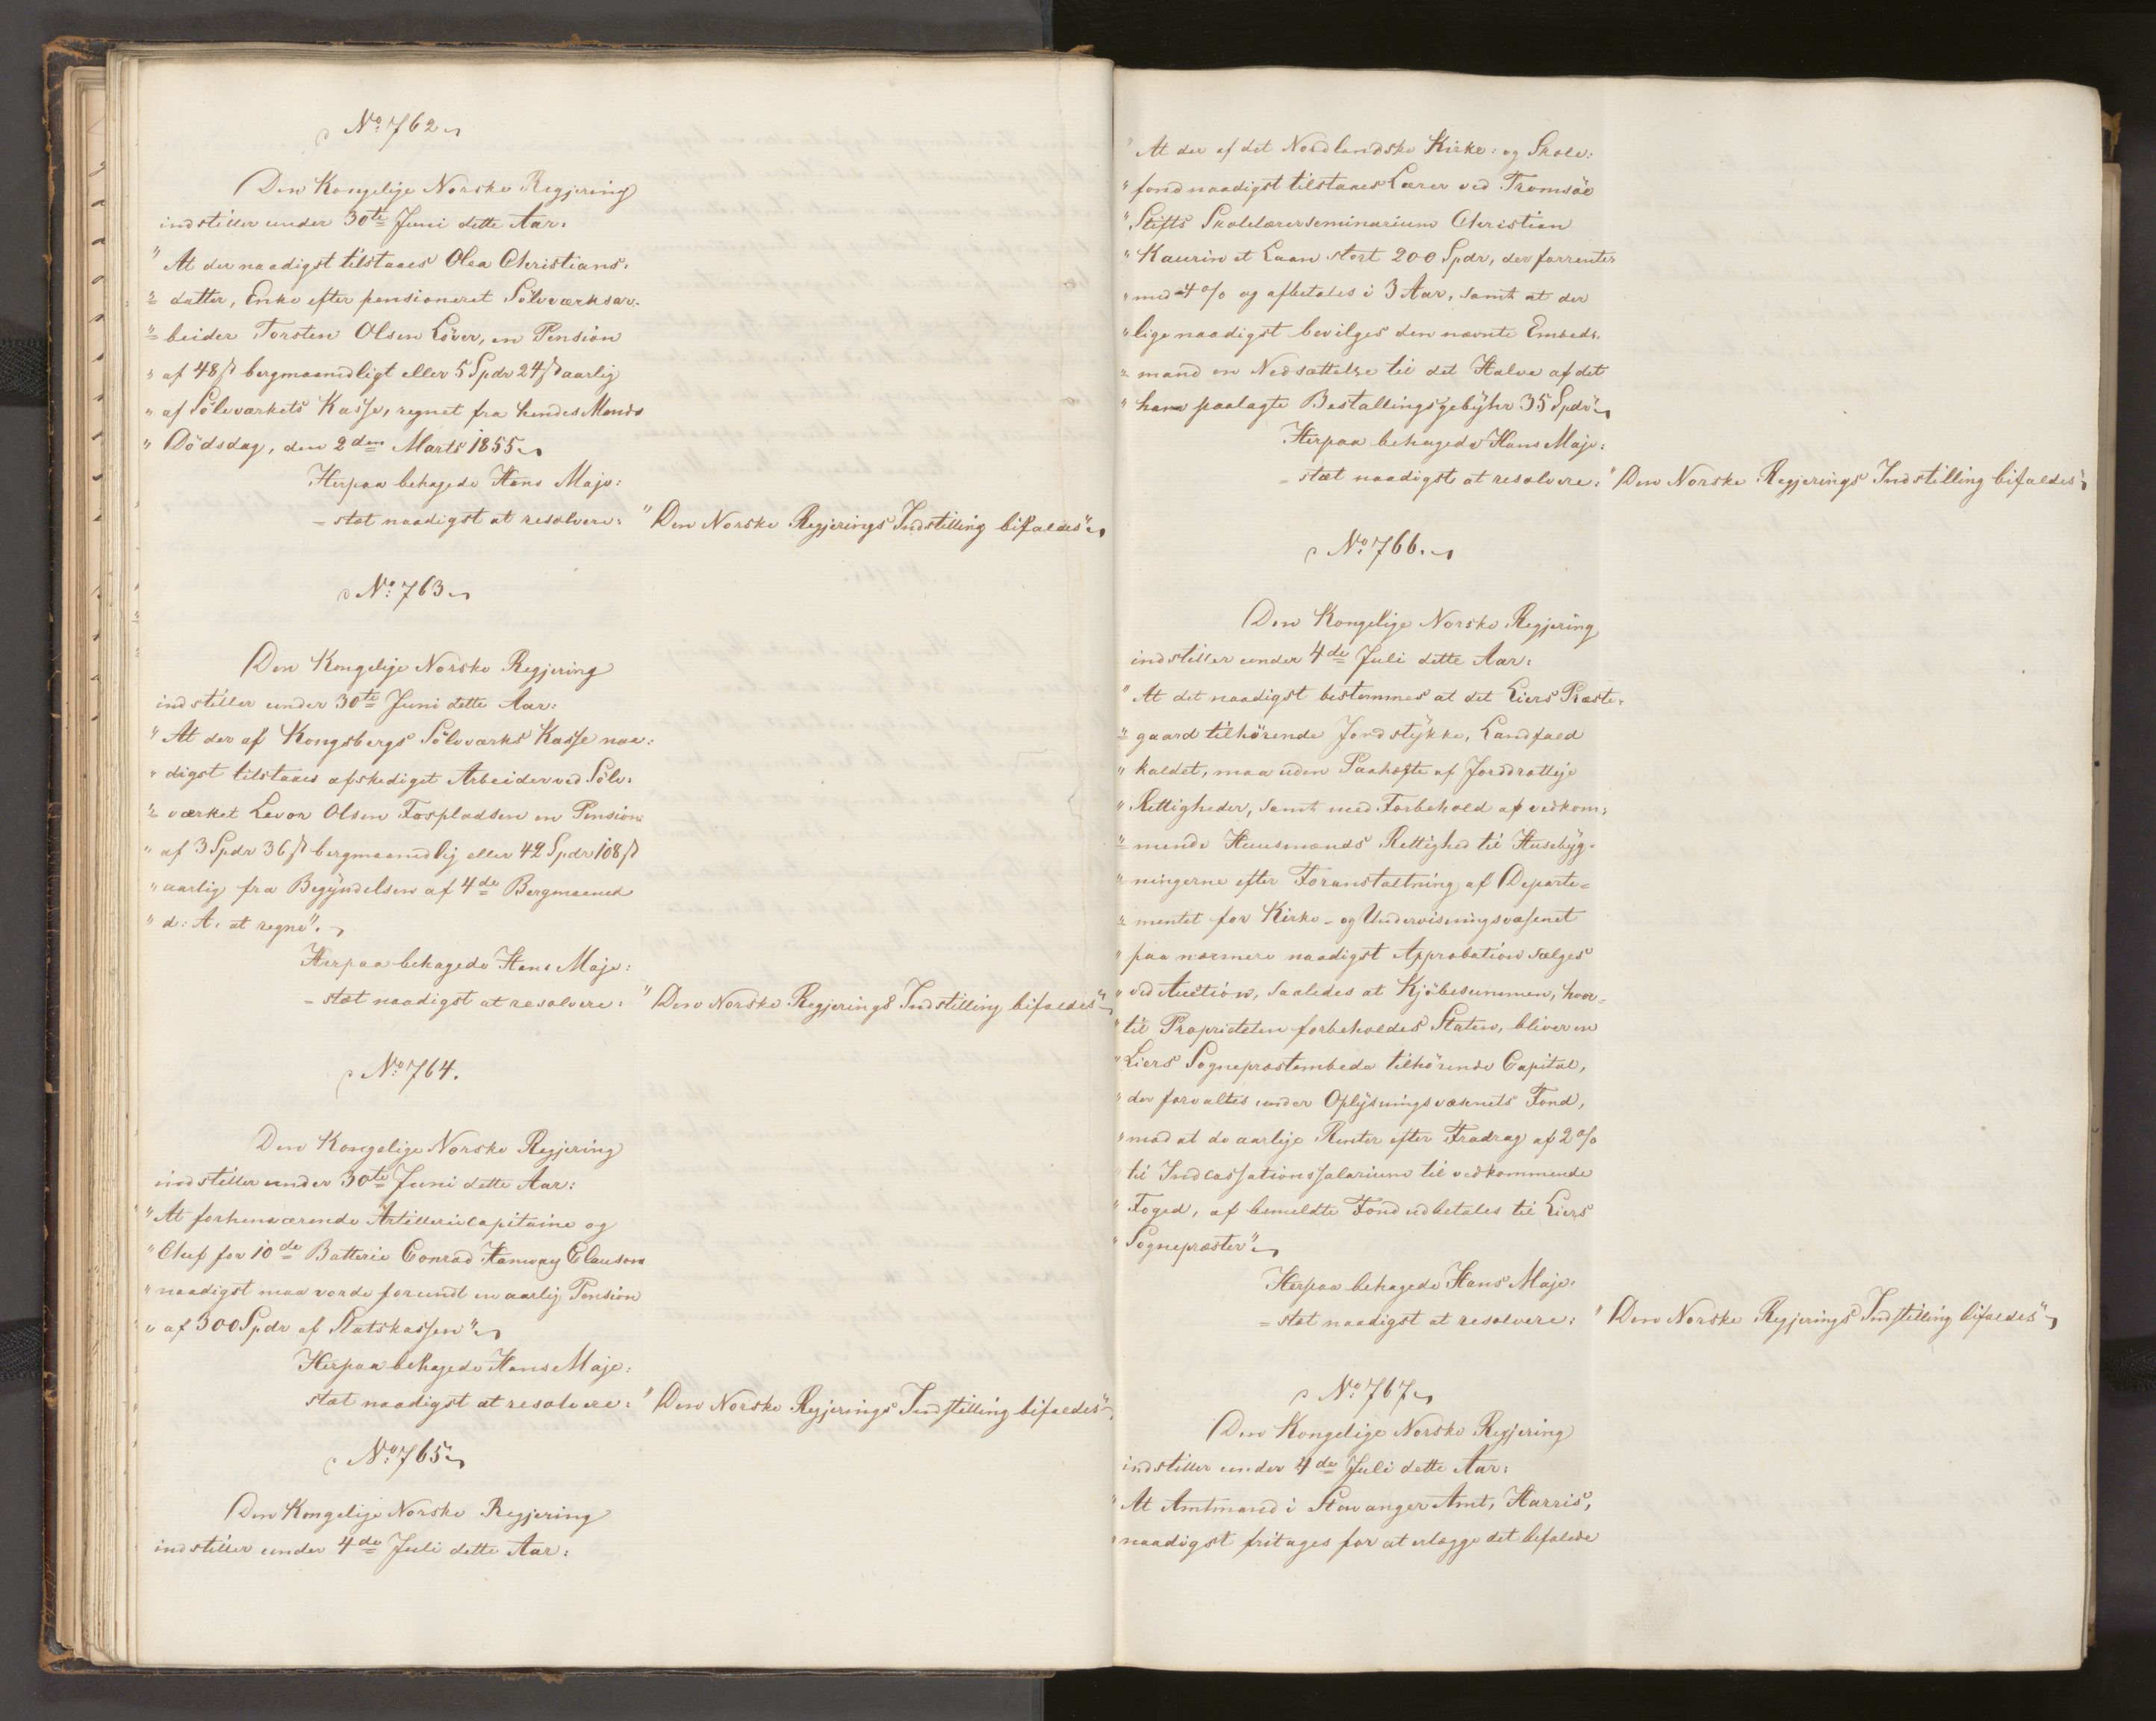 No: 762
Den Kongelige Norske Regjering
indstiller under 30te Juni dette Aar:
"At der naadigst tilstaaes Olea Christians:
"= datter, Enke efter pensioneret Sölvværksar:
"= beider Torsten Olsen Löver, en Pension
" af 48 ß bergmaanedligt eller 5 Spdr 24 ß aarlig
" af Sölvværkets Kasse, regnet fra hendes Mands
" Dödsdag, den 2den Marts 1855.
Herpaa behagede Hans Maje:
= stæt naadigst at resolvere: "Den Norske Regjerings Indstilling bifaldes"
No: 763
Den Kongelige Norske Regjering
indstiller under 30te Juni dette Aar:
"At der af Kongsbergs Sölvværks Kasse naa:
" digst tilstaaes afskediget Arbeider ved Sölv:
"= værket Levor Olsen Fospladsen en Pension
" af 3 Spdr 36 ß bergmaanedlig eller 42 Spdr 108 ß
" aarlig fra Begyndelsen af 4de Bergmaaned
" d: A: at regne".
Herpaa behagede Hans Maje:
= stæt naadigst at resolvere: "Den Norske Regjerings Indstilling bifaldes"
No: 764.
Den Kongelige Norske Regjering
indstiller under 30te Juni dette Aar:
"At forhenværende Artilleriecapitaine og
" Chef for 10de Batterie Conrad Hanway Clauson
" naadigst maa vorde forundt en aarlig Pension
" af 300 Spdr af Statskassen"
Herpaa behagede Hans Maje:
stæt naadigst at resolvere: "Den Norske Regjerings Indstilling bifaldes"
No: 765
Den Kongelige Norske Regjering
indstiller under 4de Juli dette Aar:
"At der af det Nordlandske Kirke: og Skole:
" fond naadigst tilstaaes Lærer ved Tromsöe
" Stifts Skolelærerseminarium Christian
" Kaurin et Laan stort 200 Spdr, der forrentes
" med 4 % og afbetales i 3 Aar, samt at der
" lige naadigst bevilges den nævnte Embeds:
"= mand en Nedsættelse til det Halve af det
" ham paalagte Bestallingsgebyhr 35 Spdr"
Herpaa behagede Hans Maje:
= stæt naadigst at resolvere: "Den Norske Regjerings Indstilling bifaldes"
No: 766.
Den Kongelige Norske Regjering
indstiller under 4de Juli dette Aar:
"At det naadigst bestemmes at det Liers Præste:
"= gaard tilhörende Jordstykke, Landfald
" kaldet, maa uden Paahefte af Jorddrotlige
" Rettigheder, samt med Forbehold af vedkom:
"= mende Huusmands Rettighed til Husebyg-
"= ningerne efter Foranstaltning af Departe=
"= mentet for Kirke- og Undervisningsvæsenet
" paa nærmere naadigst Approbation sælges
" ved Auction, saaledes at Kjöbesummen, hvor=
" til Proprieteten forbeholdes Staten, bliver en
" Liers Sognepræstembede tilhörende Capital,
" der forvaltes under Oplysningsvæsnets Fond,
" mod at de aarlige Renter efter Fradrag af 2 %
" til Indcassationssalarium til vedkommende
" Foged, af bemeldte Fond udbetales til Liers
" Sognepræster"
Herpaa behagede Hans Maje:
= stæt naadigst at resolvere: "Den Norske Regjerings Indstilling bifaldes"
No: 767
Den Kongelige Norske Regjering
indstiller under 4de Juli dette Aar:
"At Amtmand i Stavanger Amt, Harris,
" naadigst fritages for at erlægge det befalede